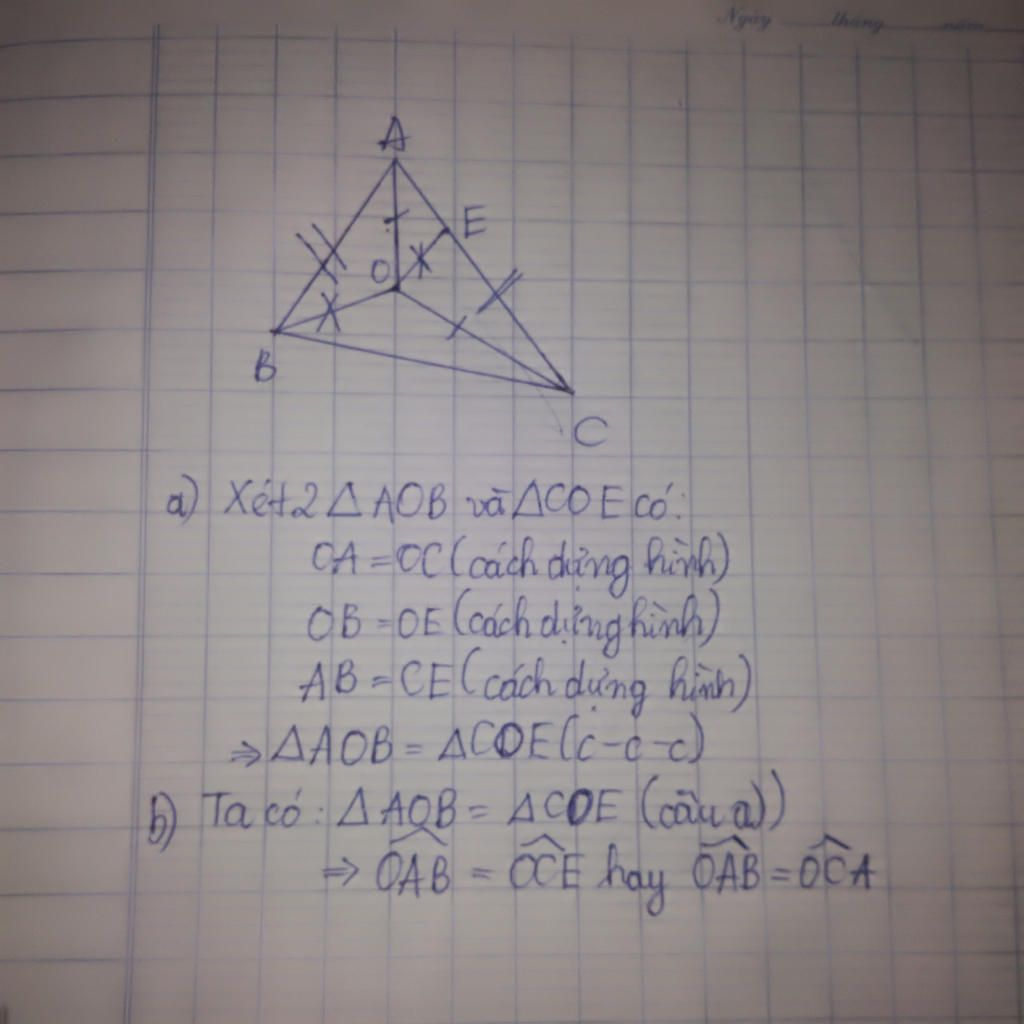 Ngày tháng năm
A
E
O
B
C
a) Xét 2 △ AOB và △COE có:
OA = OC (cách dựng hình)
OB = OE (cách dựng hình)
AB = CE (cách dựng hình)
⇒ △AOB = △COE (c-c-c)
b) Ta có: △AOB = △COE (câu a))
⇒ \widehat{OAB} = \widehat{OCE} hay \widehat{OAB} = \widehat{OCA}